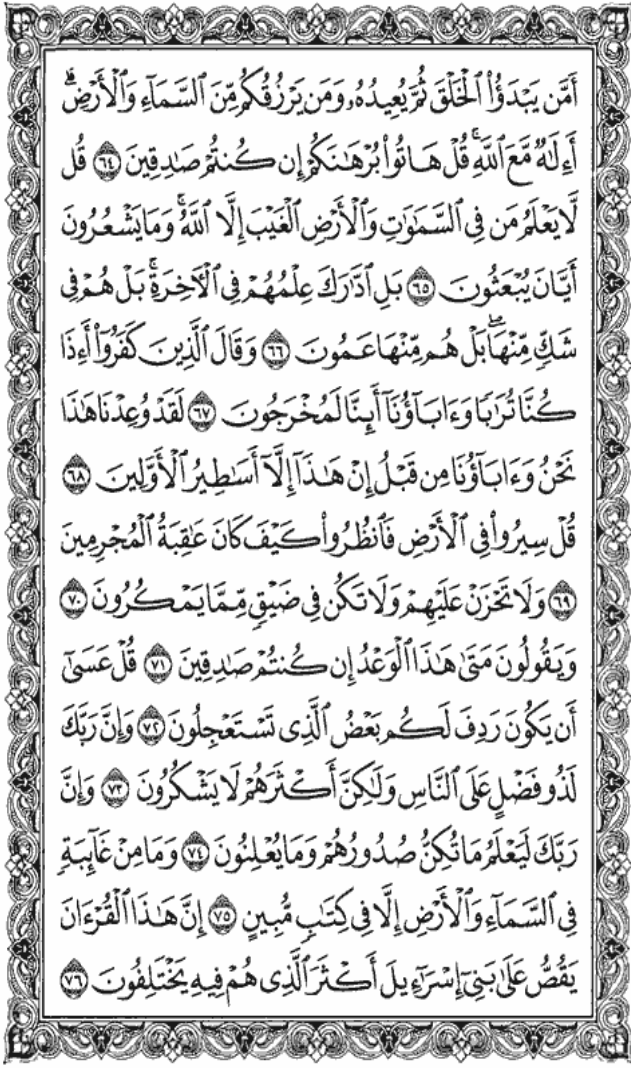 أَمَّن يَبْدَؤُا۟ ٱلْخَلْقَ ثُمَّ يُعِيدُهُۥ وَمَن يَرْزُقُكُم مِّنَ ٱلسَّمَآءِ وَٱلْأَرْضِ ۗ
أَءِلَـٰهٌ مَّعَ ٱللَّهِ ۚ قُلْ هَاتُوا۟ بُرْهَـٰنَكُمْ إِن كُنتُمْ صَـٰدِقِينَ ٦٤ قُل
لَّا يَعْلَمُ مَن فِى ٱلسَّمَـٰوَٰتِ وَٱلْأَرْضِ ٱلْغَيْبَ إِلَّا ٱللَّهُ ۚ وَمَا يَشْعُرُونَ
أَيَّانَ يُبْعَثُونَ ٦٥ بَلِ ٱدَّٰرَكَ عِلْمُهُمْ فِى ٱلْـَٔاخِرَةِ ۚ بَلْ هُمْ فِى
شَكٍّ مِّنْهَا ۖ بَلْ هُم مِّنْهَا عَمُونَ ٦٦ وَقَالَ ٱلَّذِينَ كَفَرُوٓا۟ أَءِذَا
كُنَّا تُرَٰبًا وَءَابَآؤُنَآ أَئِنَّا لَمُخْرَجُونَ ٦٧ لَقَدْ وُعِدْنَا هَـٰذَا
نَحْنُ وَءَابَآؤُنَا مِن قَبْلُ إِنْ هَـٰذَآ إِلَّآ أَسَـٰطِيرُ ٱلْأَوَّلِينَ ٦٨
قُلْ سِيرُوا۟ فِى ٱلْأَرْضِ فَٱنظُرُوا۟ كَيْفَ كَانَ عَـٰقِبَةُ ٱلْمُجْرِمِينَ
٦٩ وَلَا تَحْزَنْ عَلَيْهِمْ وَلَا تَكُن فِى ضَيْقٍ مِّمَّا يَمْكُرُونَ ٧٠
وَيَقُولُونَ مَتَىٰ هَـٰذَا ٱلْوَعْدُ إِن كُنتُمْ صَـٰدِقِينَ ٧١ قُلْ عَسَىٰٓ
أَن يَكُونَ رَدِفَ لَكُم بَعْضُ ٱلَّذِى تَسْتَعْجِلُونَ ٧٢ وَإِنَّ رَبَّكَ
لَذُو فَضْلٍ عَلَى ٱلنَّاسِ وَلَـٰكِنَّ أَكْثَرَهُمْ لَا يَشْكُرُونَ ٧٣ وَإِنَّ
رَبَّكَ لَيَعْلَمُ مَا تُكِنُّ صُدُورُهُمْ وَمَا يُعْلِنُونَ ٧٤ وَمَا مِنْ غَآئِبَةٍ
فِى ٱلسَّمَآءِ وَٱلْأَرْضِ إِلَّا فِى كِتَـٰبٍ مُّبِينٍ ٧٥ إِنَّ هَـٰذَا ٱلْقُرْءَانَ
يَقُصُّ عَلَىٰ بَنِىٓ إِسْرَٰٓءِيلَ أَكْثَرَ ٱلَّذِى هُمْ فِيهِ يَخْتَلِفُونَ ٧٦